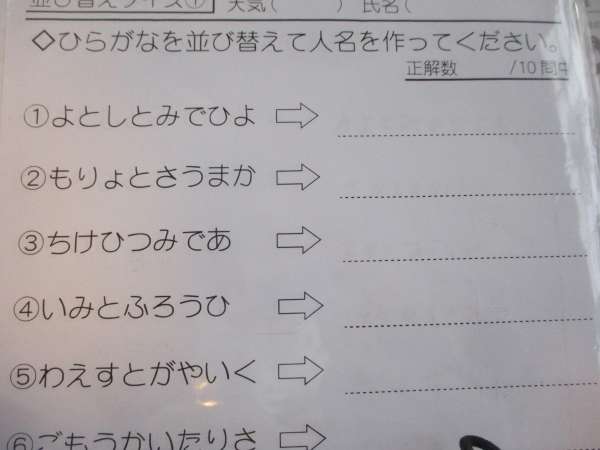 並び替えクイズ① 天気( ) 氏名(
◇ひらがなを並び替えて人名を作ってください。
正解数 /10問中
①よとしとみでひよ
②もりょとさうまか
③ちけひつみであ
④いみとふろうひ
⑤わえすとがやいく
⑥ごもうかいたりさ